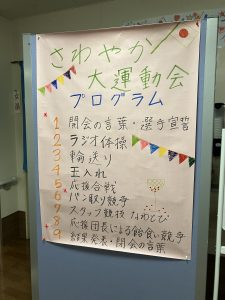 さわやか
大運動会
プログラム
1 開会の言葉・選手宣誓
2 ラジオ体操
3 輪送り
4 玉入れ
5 応援合戦
6 パン取り競争
7 スタッフ競技 なわとび
8 応援団長による飴食い競争
9 結果発表・閉会の言葉